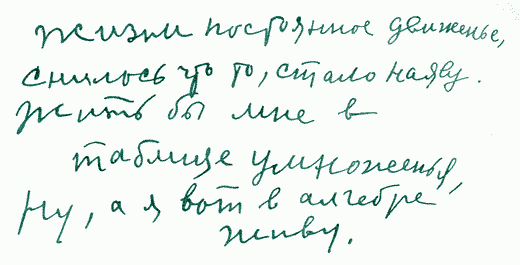 жизни постоянное движенье,
снилось что то, стало наяву.
Жить бы мне в
таблице умноженья,
Ну, а я вот в алгебре
живу.